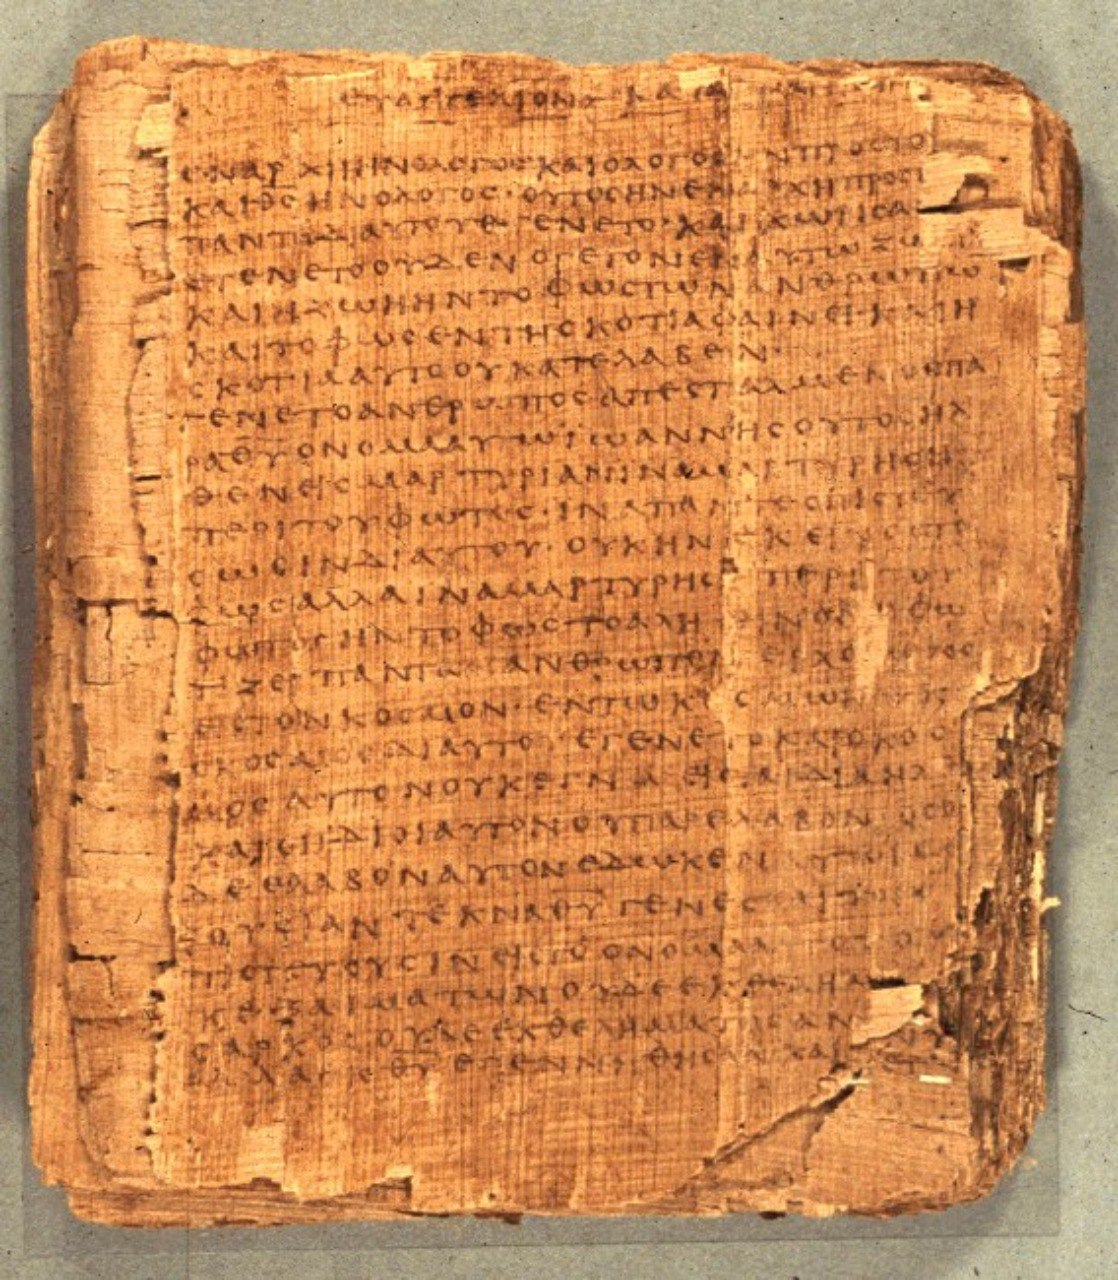 ΕΥΑΓΓΕΛΙΟΝ ΚΑΤΑ
ΕΝΑΡΧΗΗΝΟΛΟΓΟϹΚΑΙΟΛΟΓΟϹΗΝΠΡΟϹΤΟ
ΚΑΙΘ̅Ϲ̅ΗΝΟΛΟΓΟϹ·ΟΥΤΟϹΗΝΕΝΑΡΧΗΠΡΟϹΤ
ΠΑΝΤΑΔΙΑΥΤΟΥΕΓΕΝΕΤΟ·ΚΑΙΧΩΡΙϹΑ
ΕΓΕΝΕΤΟΟΥΔΕΝΟΓΕΓΟΝΕΝΕΝΑΥΤΩΖΩ
ΚΑΙΗΖΩΗΗΝΤΟΦΩϹΤΩΝΑΝΘΡΩΠΩ
ΚΑΙΤΟΦΩϹΕΝΤΗϹΚΟΤΙΑΦΑΙΝΕΙ·ΚΑΙΗ
ϹΚΟΤΙΑΑΥΤΟΟΥΚΑΤΕΛΑΒΕΝ·
ΕΓΕΝΕΤΟΑΝΘΡΩΠΟϹΑΠΕϹΤΑΛΜΕΝΟϹΠΑ
ΡΑΘ̅Υ̅ΟΝΟΜΑΑΥΤΩΙΩΑΝΝΗϹΟΥΤΟϹΗΛ
ΘΕΝΕΙϹΜΑΡΤΥΡΙΑΝΙΝΑΜΑΡΤΥΡΗϹΗ
ΠΕΡΙΤΟΥΦΩΤΟϹ·ΙΝΑΠΑΝΤΕϹΠΙϹΤΕΥ
ϹΩϹΙΝΔΙΑΥΤΟΥ·ΟΥΚΗΝΕΚΕΙΝΟϹΤΟ
ΦΩϹΑΛΛΑΙΝΑΜΑΡΤΥΡΗϹΗΠΕΡΙΤΟΥ
ΦΩΤΟϹΗΝΤΟΦΩϹΤΟΑΛΗΘΙΝΟΝΟΦΩ
ΤΙΖΕΙΠΑΝΤΑΑΝΘΡΩΠΟΝΕΡΧΟΜΕΝΟΝ
ΕΙϹΤΟΝΚΟϹΜΟΝ·ΕΝΤΩΚΟϹΜΩΗΝΚΑΙ
ΟΚΟϹΜΟϹΔΙΑΥΤΟΥΕΓΕΝΕΤΟΚΑΙΟΚΟϹ
ΜΟϹΑΥΤΟΝΟΥΚΕΓΝΩΕΙϹΤΑΙΔΙΑΗΛΘΕ
ΚΑΙΟΙΙΔΙΟΙΑΥΤΟΝΟΥΠΑΡΕΛΑΒΟΝΟϹΟΙ
ΔΕΕΛΑΒΟΝΑΥΤΟΝΕΔΩΚΕΝΑΥΤΟΙϹΕ
ΞΟΥϹΙΑΝΤΕΚΝΑΘ̅Υ̅ΓΕΝΕϹΘΑΙΤΟΙϹ
ΠΙϹΤΕΥΟΥϹΙΝΕΙϹΤΟΟΝΟΜΑΑΥΤΟΥΟ
ΚΕΞΑΙΜΑΤΩΝΟΥΔΕΕΚΘΕΛΗΜΑ
ϹΑΡΚΟϹΟΥΔΕΕΚΘΕΛΗΜΑΤΟϹΑΝ
ΑΛΛΑΕΚΘ̅Υ̅ΕΓΕΝΝΗΘΗϹΑΝΚΑΙ